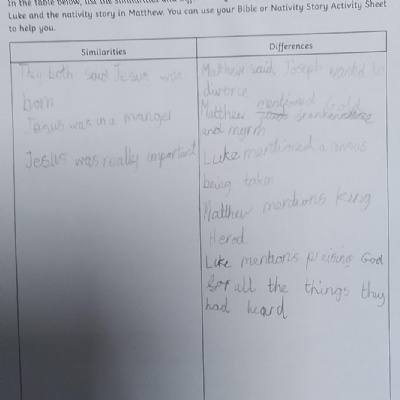 In the table below, list the similarities and
Luke and the nativity story in Matthew. You can use your Bible or Nativity Story Activity Sheet
to help you.
Similarities
They both said Jesus was
born
Jesus was in a manger
Jesus was really important
Differences
Matthew said Joseph wanted to
divorce
Matthew mentioned Gold
and myrrh
Luke mentioned a
being taken
Matthew mentions King
Herod
Luke mentions praising God
for all the things they
had heard